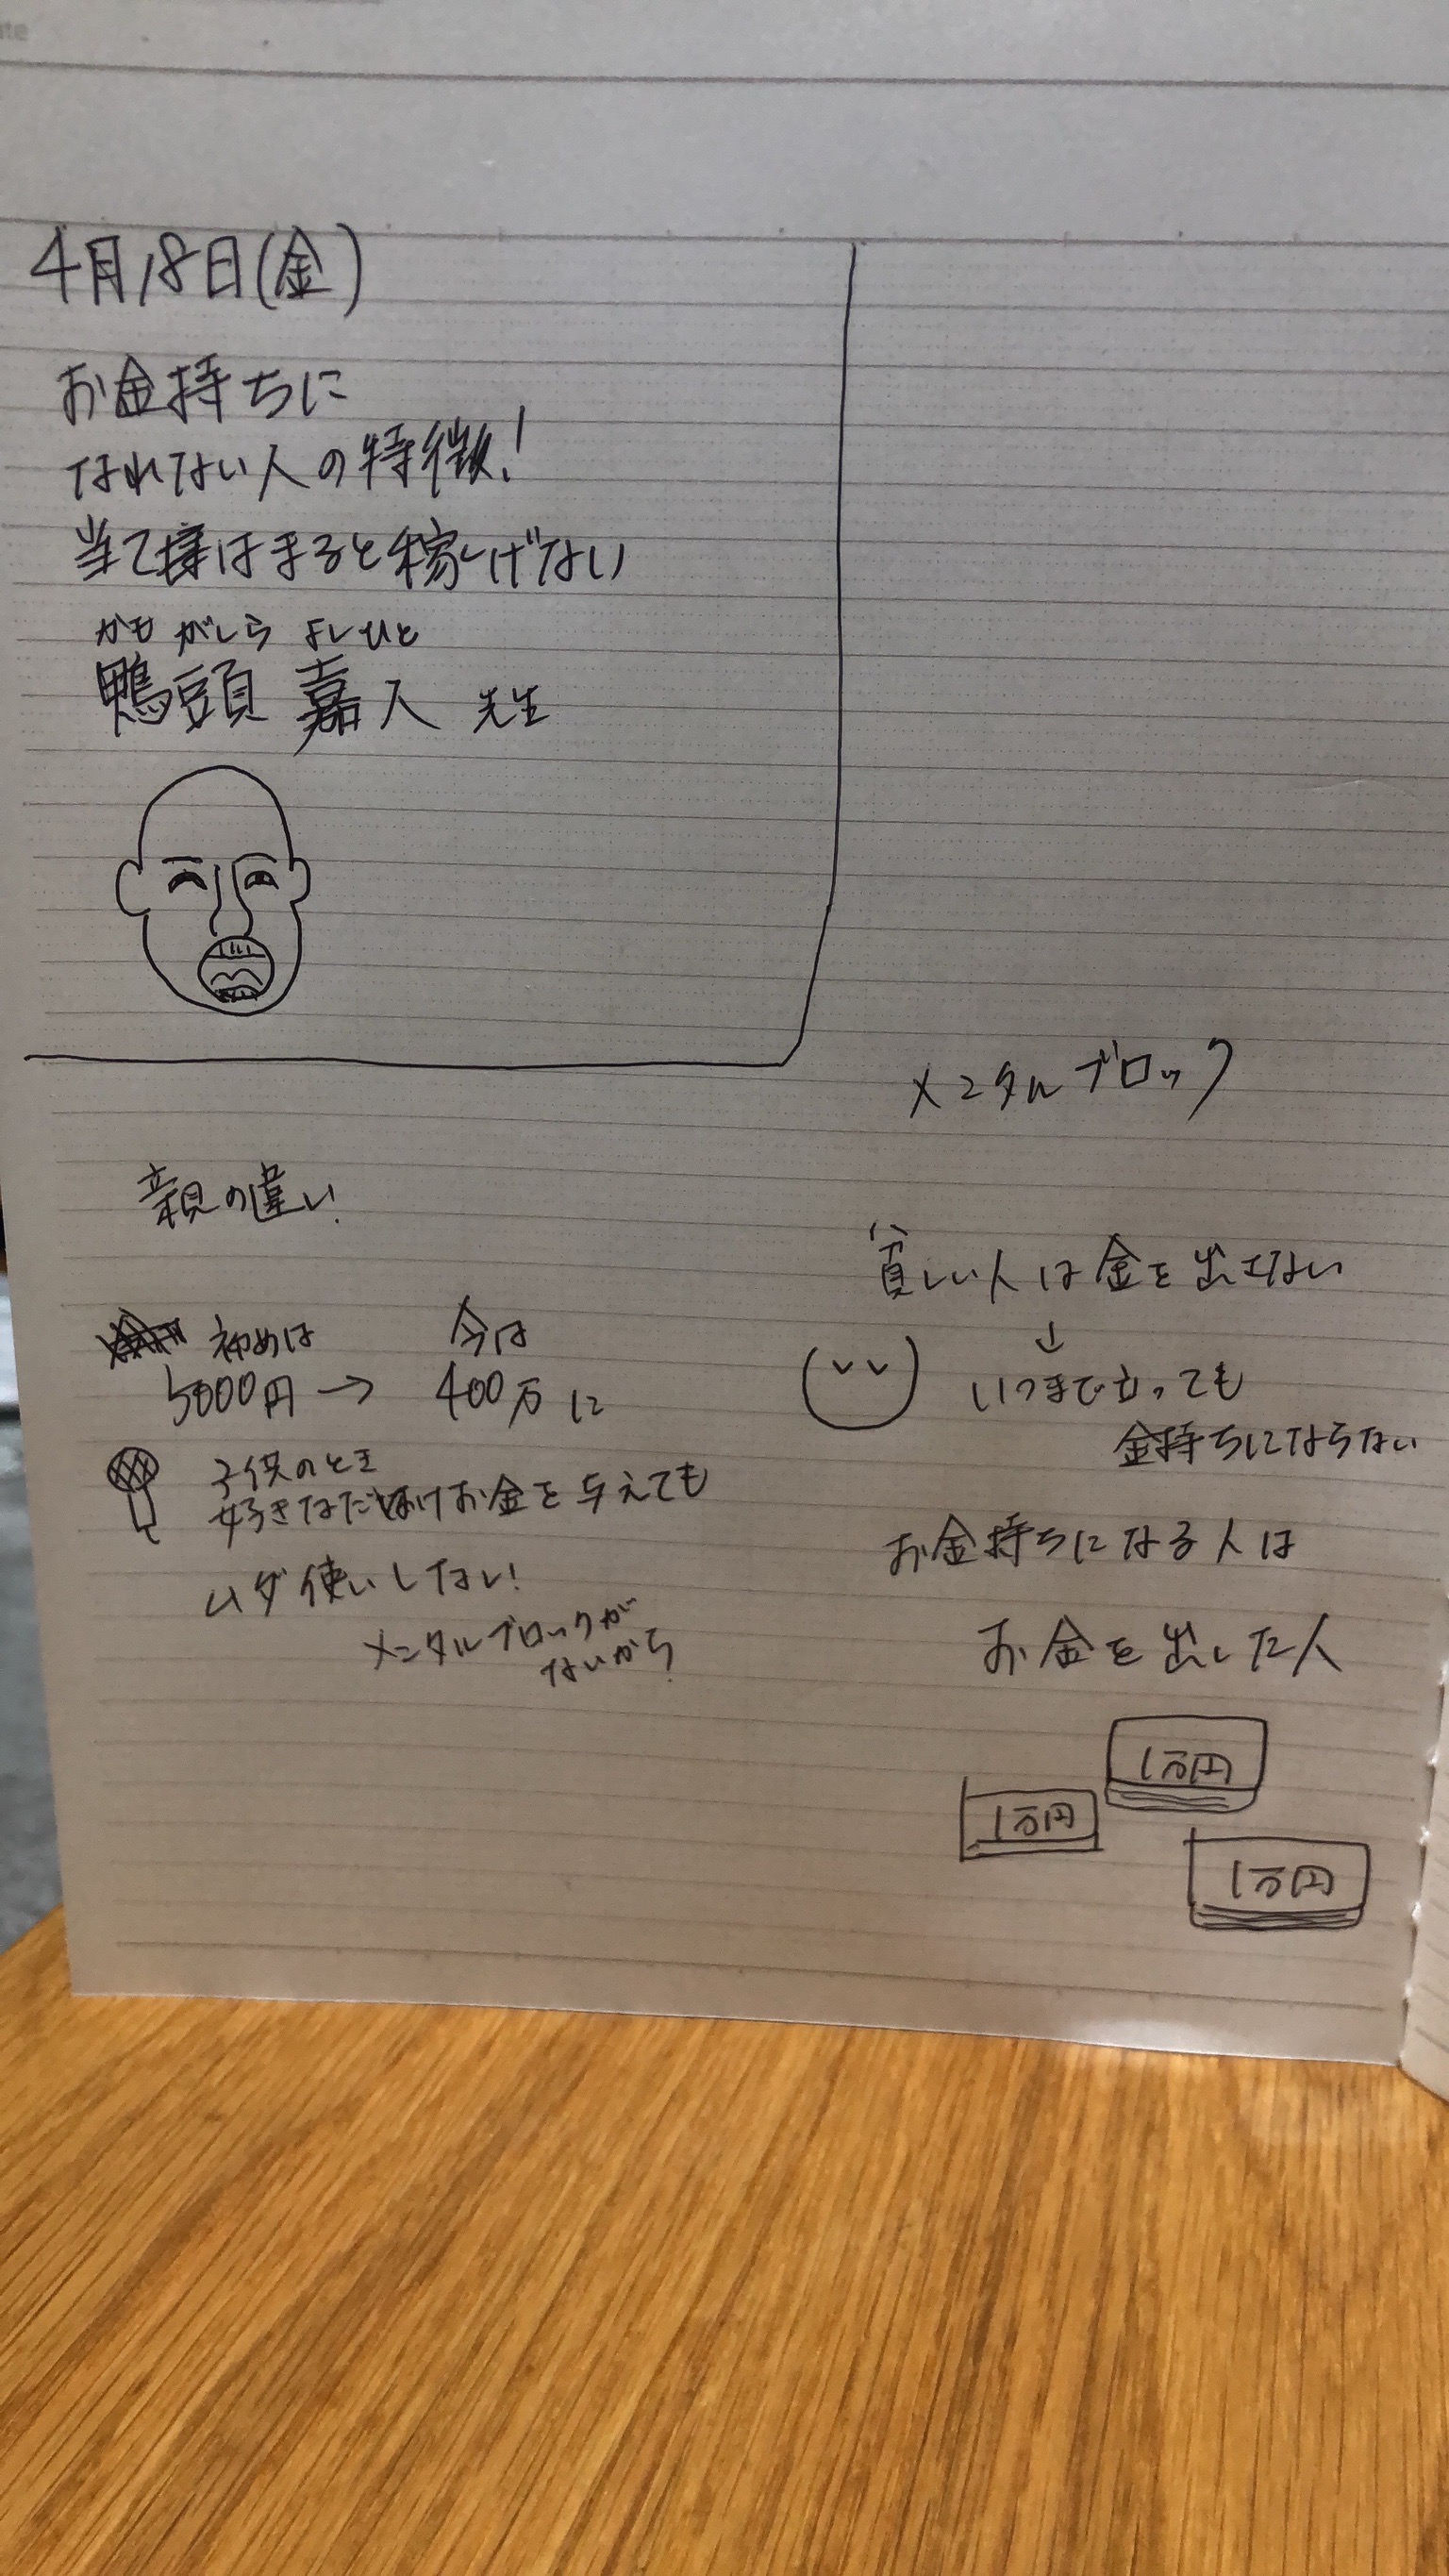 4月18日(金)
お金持ちに
なれない人の特徴!
当て様はまると稼しげない
かも がしら よしひと
鴨頭 嘉人 先生
メンタルブロック
親の違い!
貧しい人は金を出さない
↓
いつまで立っても
金持ちにならない
初めは 今は
5000円→ 400万に
子供のとき
好きなだけお金を与えても
ムダ使いしない!
メンタルブロックが
ないから!
お金持ちになる人は
お金を出した人
1万円
1万円
1万円